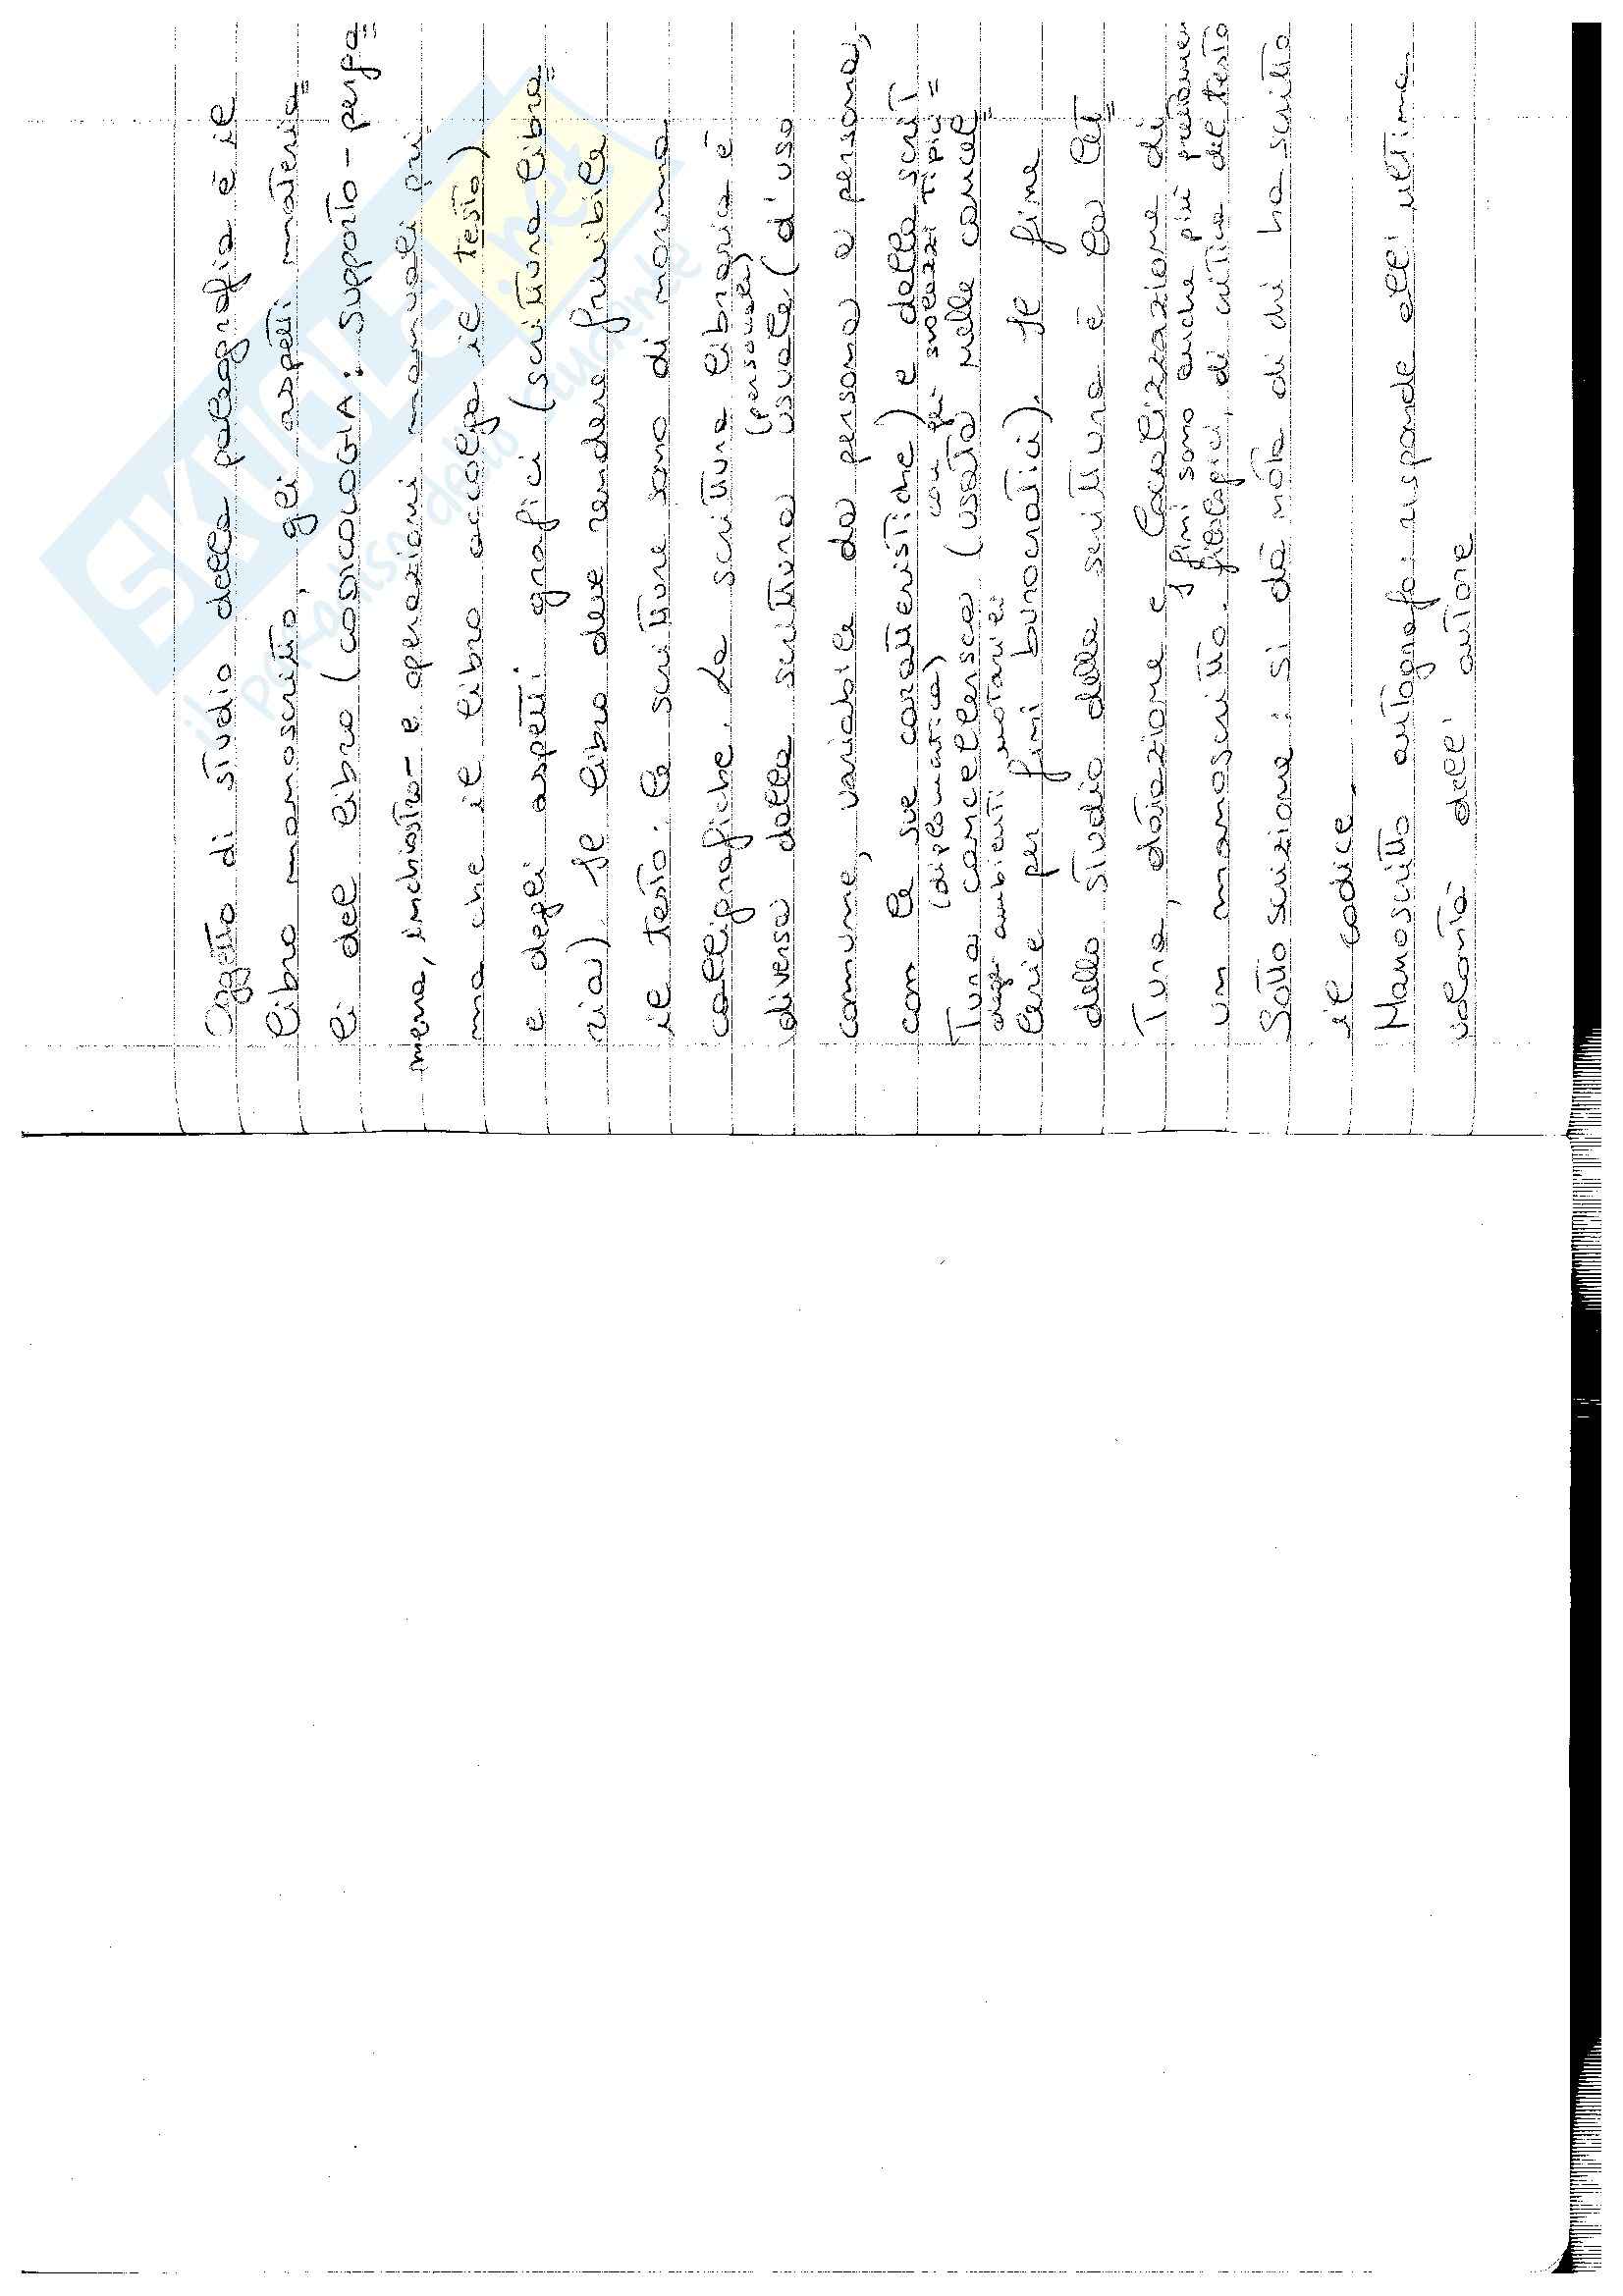 Oggetto di studio della paleografia è il
libro manoscritto, gli aspetti materia=
li del libro (CODICOLOGIA: supporto - perga=
mena, inchiostro - e operazioni manuali pri
ma che il libro accolga il testo)
e degli aspetti grafici (scrittura libra=
ria). Il libro deve rendere fruibile
il testo: le scritture sono di norma
calligrafiche. La scrittura libraria è
(personale)
diversa dalla scrittura usuale (d'uso
comune, variabile da persona a persona,
con le sue caratteristiche) e dalla scrit
(diplomatica) con gli svolazzi tipici =
tura cancelleresca (usata nelle cancel=
degli ambienti notarili
lerie per fini burocratici). Il fine
dello studio della scrittura è la let=
tura, datazione e localizzazione di
I fini sono anche più prettamen
un manoscritto. filologici, di critica del testo
Sottoscrizione: si dà nota di chi ha scritto
il codice.
Manoscritto autografo: risponde all'ultima
volontà dell'autore
SKUOLA.net
il paradiso dello studente